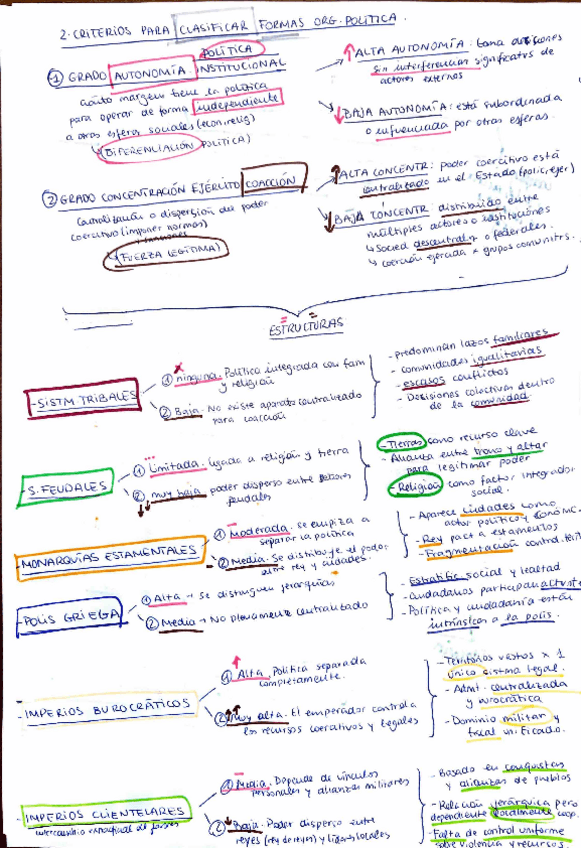 2. CRITERIOS PARA CLASIFICAR FORMAS ORG. POLITICA.
POLÍTICA
① GRADO AUTONOMÍA INSTITUCIONAL
cuánto margen tiene la política
para operar de forma independiente
a otras esferas sociales (econ, relig)
↳ (DIFERENCIACIÓN POLÍTICA)
↑ ALTA AUTONOMÍA: toma decisiones
sin interferencias significatvs de
actores externos
↓ BAJA AUTONOMÍA: está subordinada
o influenciada por otras esferas.
② GRADO CONCENTRACIÓN EJÉRCITO COACCIÓN
Centralización o dispersión del poder
coercitivo (imponer normas)
y sanciones
↳ (FUERZA LEGÍTIMA)
↑ ALTA CONCENTR: poder coercitivo está
centralizado en el Estado (polic, ejer)
↓ BAJA CONCENTR: distribuido entre
múltiples actores o instituciones
↳ Socied descentraliz o federales.
↳ coerción ejercida x grupos comunitrs.
ESTRUCTURAS
- SISTM TRIBALES
① ninguna. Política integrada con fam
y religión
② Baja. No existe aparato centralizado
para coacción
- Predominan lazos familiares
- comunidades igualitarias
- escasos conflictos
- Decisiones colectivas dentro
de la comunidad
- S. FEUDALES
① Limitada. ligada a religión y tierra
② muy baja. poder disperso entre señores
feudales
- Tierras como recurso clave
- Alianza entre trono y altar
para legitimar poder
- Religión como factor integrador
social.
- MONARQUÍAS ESTAMENTALES
① Moderada. se empieza a
separar la política
② Media. Se distribuye el poder
entre rey y ciudades.
- Aparece ciudades como
actor político y económc.
- Rey pacta estamentos
- Fragmentación control
- POLIS GRIEGA
① Alta → Se distinguen jerarquías
② Media → No plenamente centralizado
- Estratific social y lealtad
- ciudadanos participan
- Política y ciudadanía están
intrínsecas a la polis.
- IMPERIOS BUROCRÁTICOS
① Alta. Política separada
completamente.
② Muy alta. El emperador controla
los recursos coercitivos y legales
- Territorios vastos x 1
único sistema legal.
- Admt. centralizada
y burocrática
- Dominio militar y
fiscal unificado.
- IMPERIOS CLIENTELARES
① Media. Depende de vínculos
personales y alianzas militares
② Baja. Poder disperso entre
reyes (rey de reyes) y líderes locales
- Basado en conquistas
y alianzas de pueblos
- Relación jerárquica pero
dependiente localmente coop.
- Falta de control uniforme
sobre violencia y recursos.